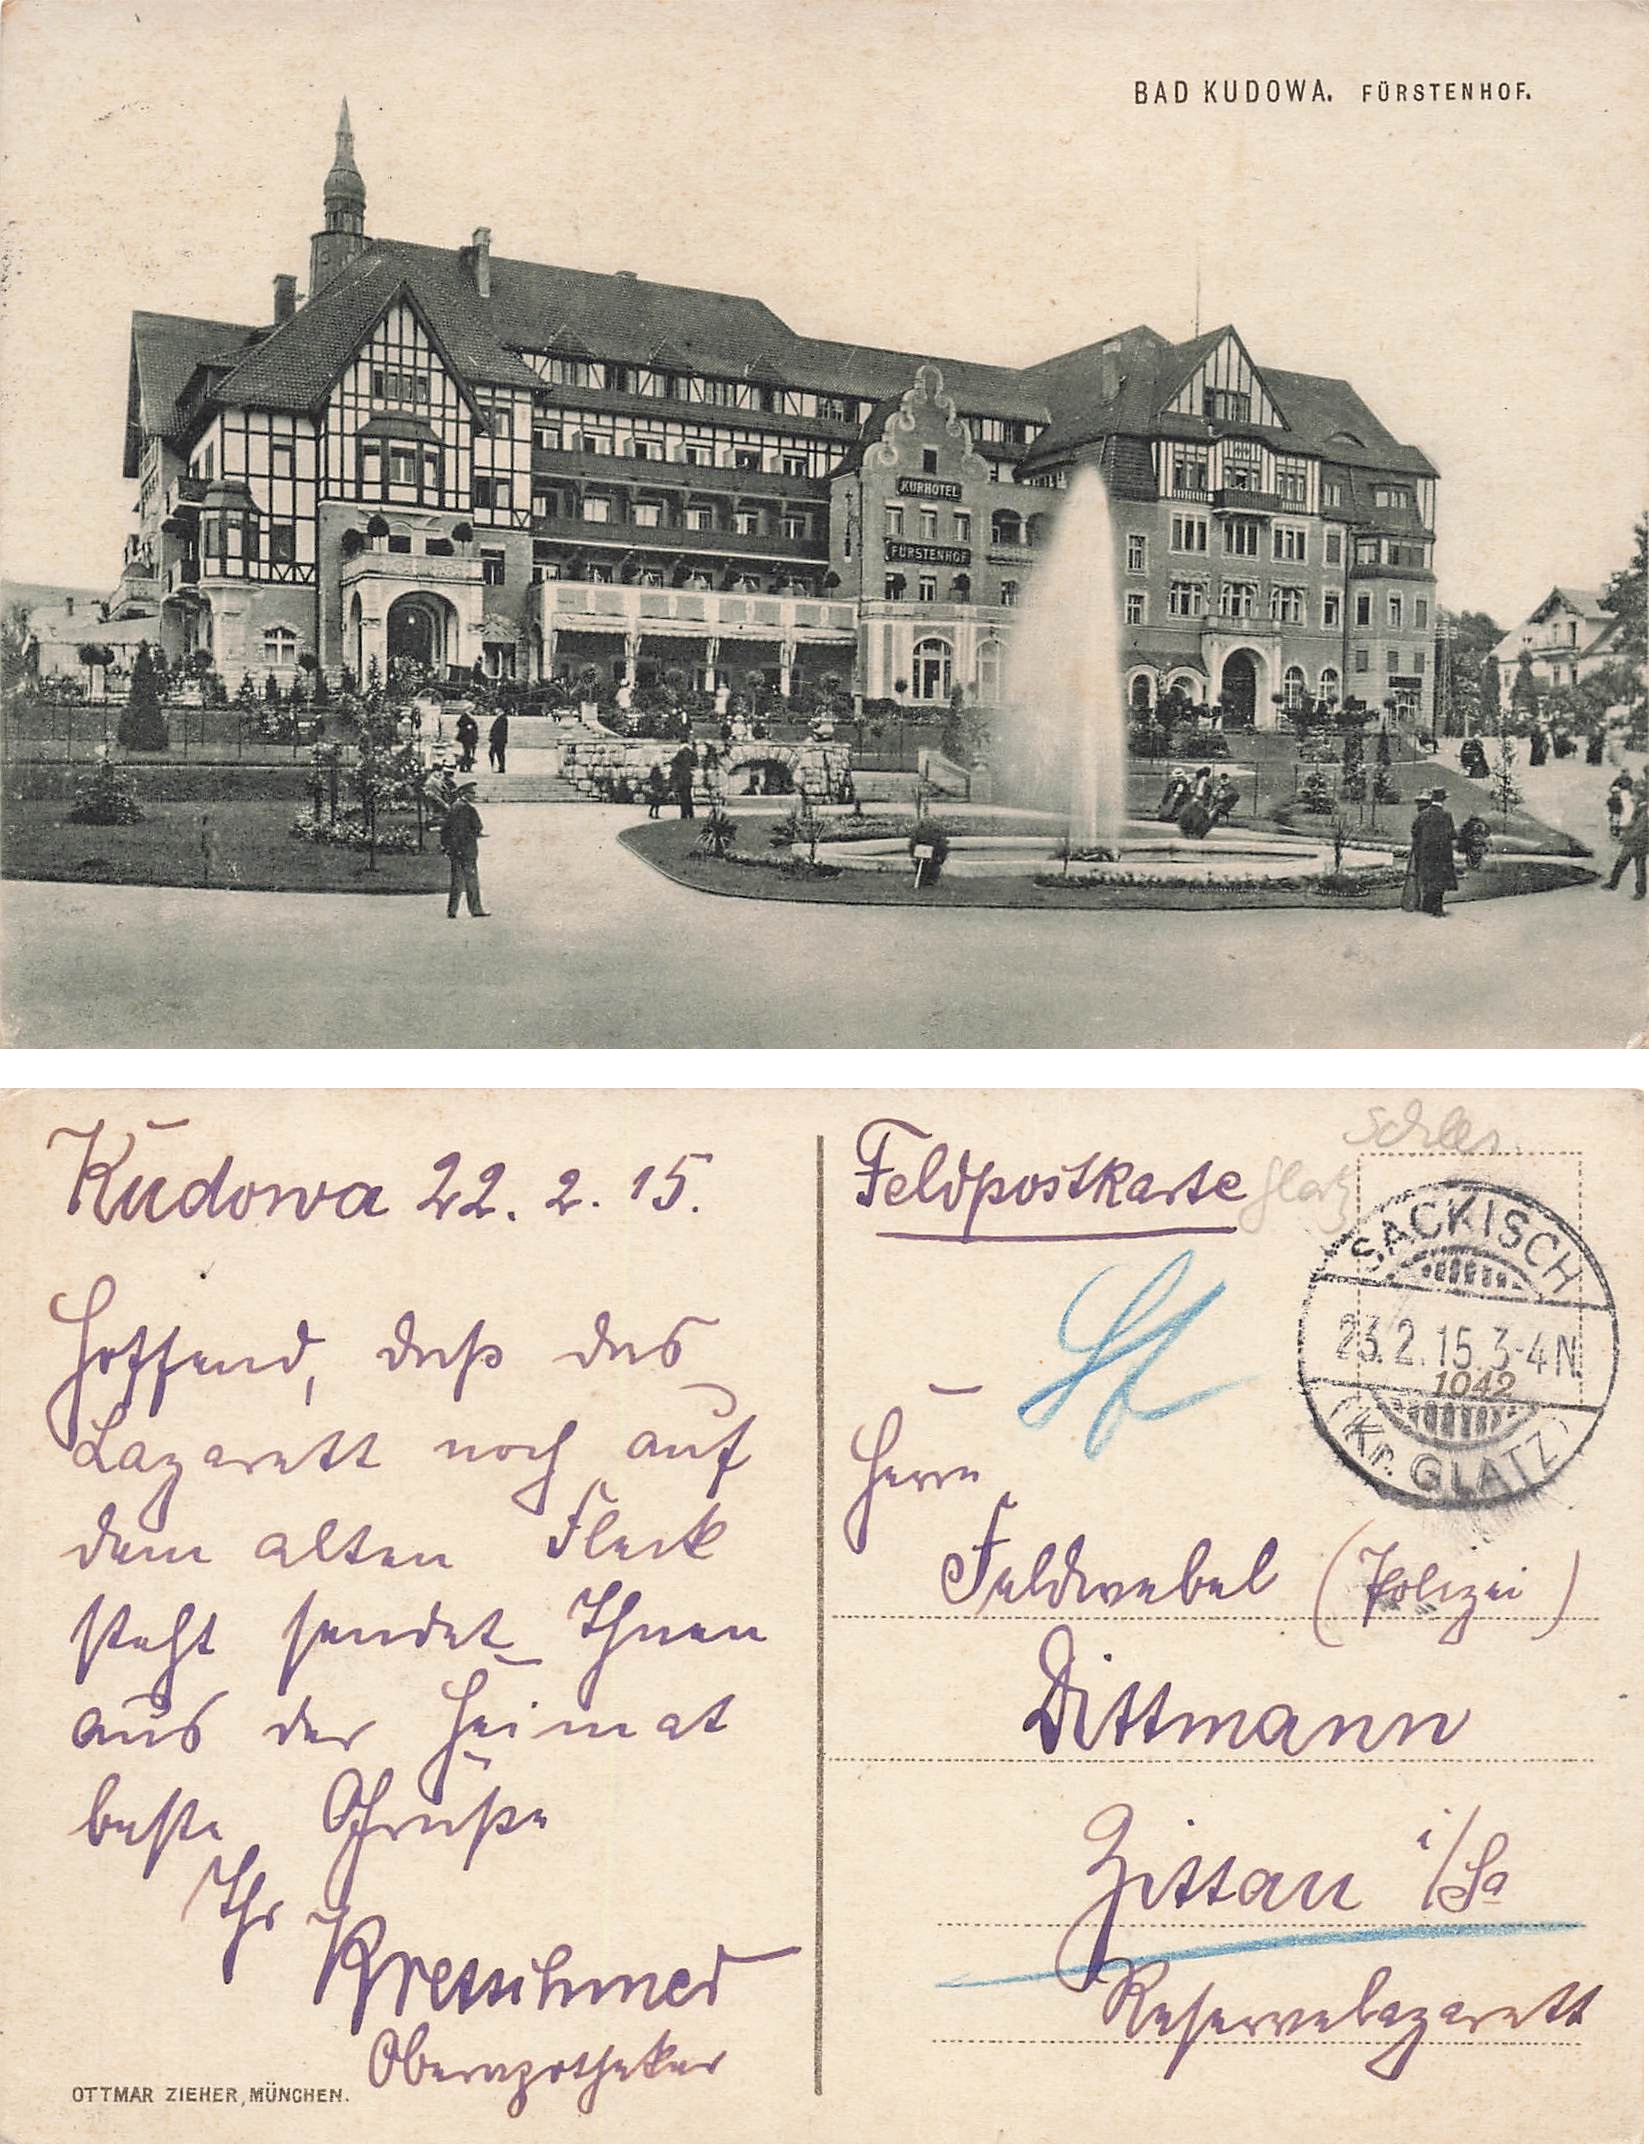 BAD KUDOWA. FÜRSTENHOF.
KURHOTEL
FÜRSTENHOF
Kudowa 22. 2. 15.
Hoffend, daß das
Lazarett noch auf
dem alten Fleck
steht sendet Ihnen
aus der Heimat
beste Grüße
Ihr
Kretschmer
Oberapotheker
OTTMAR ZIEHER, MÜNCHEN.
Feldpostkarte
Schles.
Glatz
SACKISCH
23.2.15.3-4N
1042
(Kr. GLATZ)
Herrn
Feldwebel (Polizei)
Dittmann
Zittau i/Sa
Reservelazarett